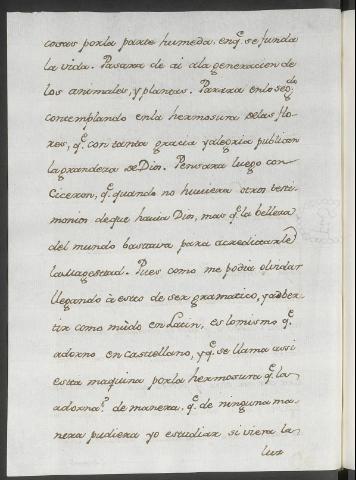 cosas por la parte humeda, en q.e se funda
la vida. Pasara de ai a la generacion de
los animales, y plantas. Parara en lo seg.do
contemplando en la hermosura de las flo-
res, q.e con tanta gracia y alegria publican
la grandeza de Dios. Pensara luego con
Ciceron, q.e quando no huviera otros testi-
monios de que havia Dios, mas q.e la belleza
del mundo bastava para acreditarle
la Magestad. Pues como me podia olvidar
llegando à esto de ser gramatico, y adver-
tir como mùdo en Latin, es lo mismo q.e
adorno en castellano, y q.e se llama assi
esta maquina por la hermosura q.e la
adorna? de manera, q.e de ninguna ma-
nera pudiera yo estudiar si viera la
luz